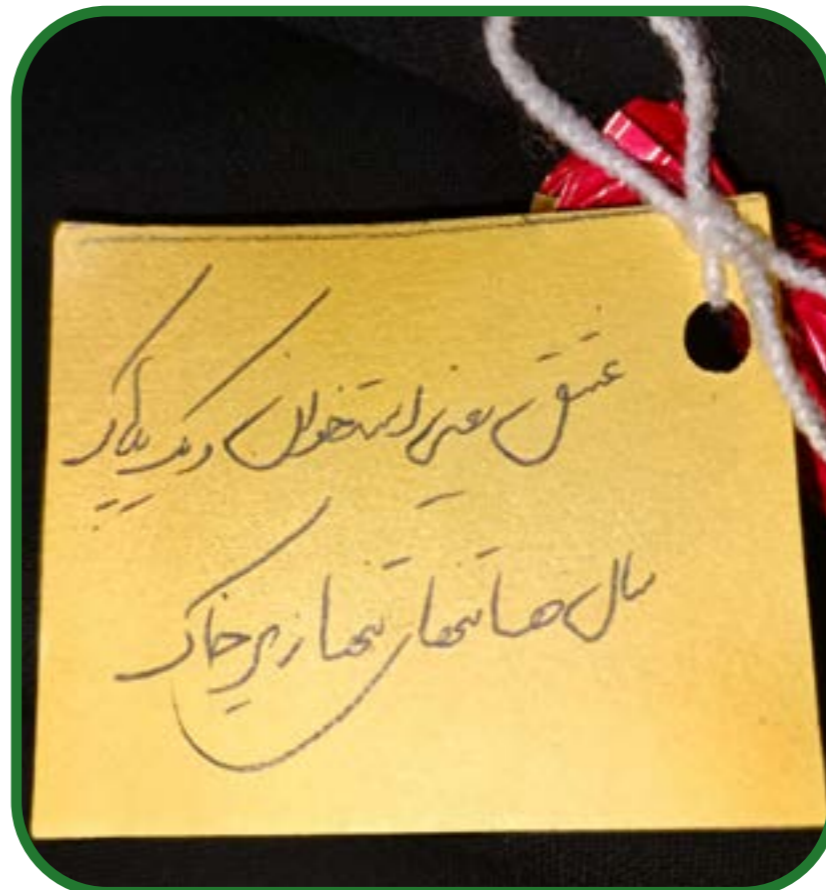 عشق یعنی استخوان و یک پلاک
سال ها تنهای تنها زیر خاک